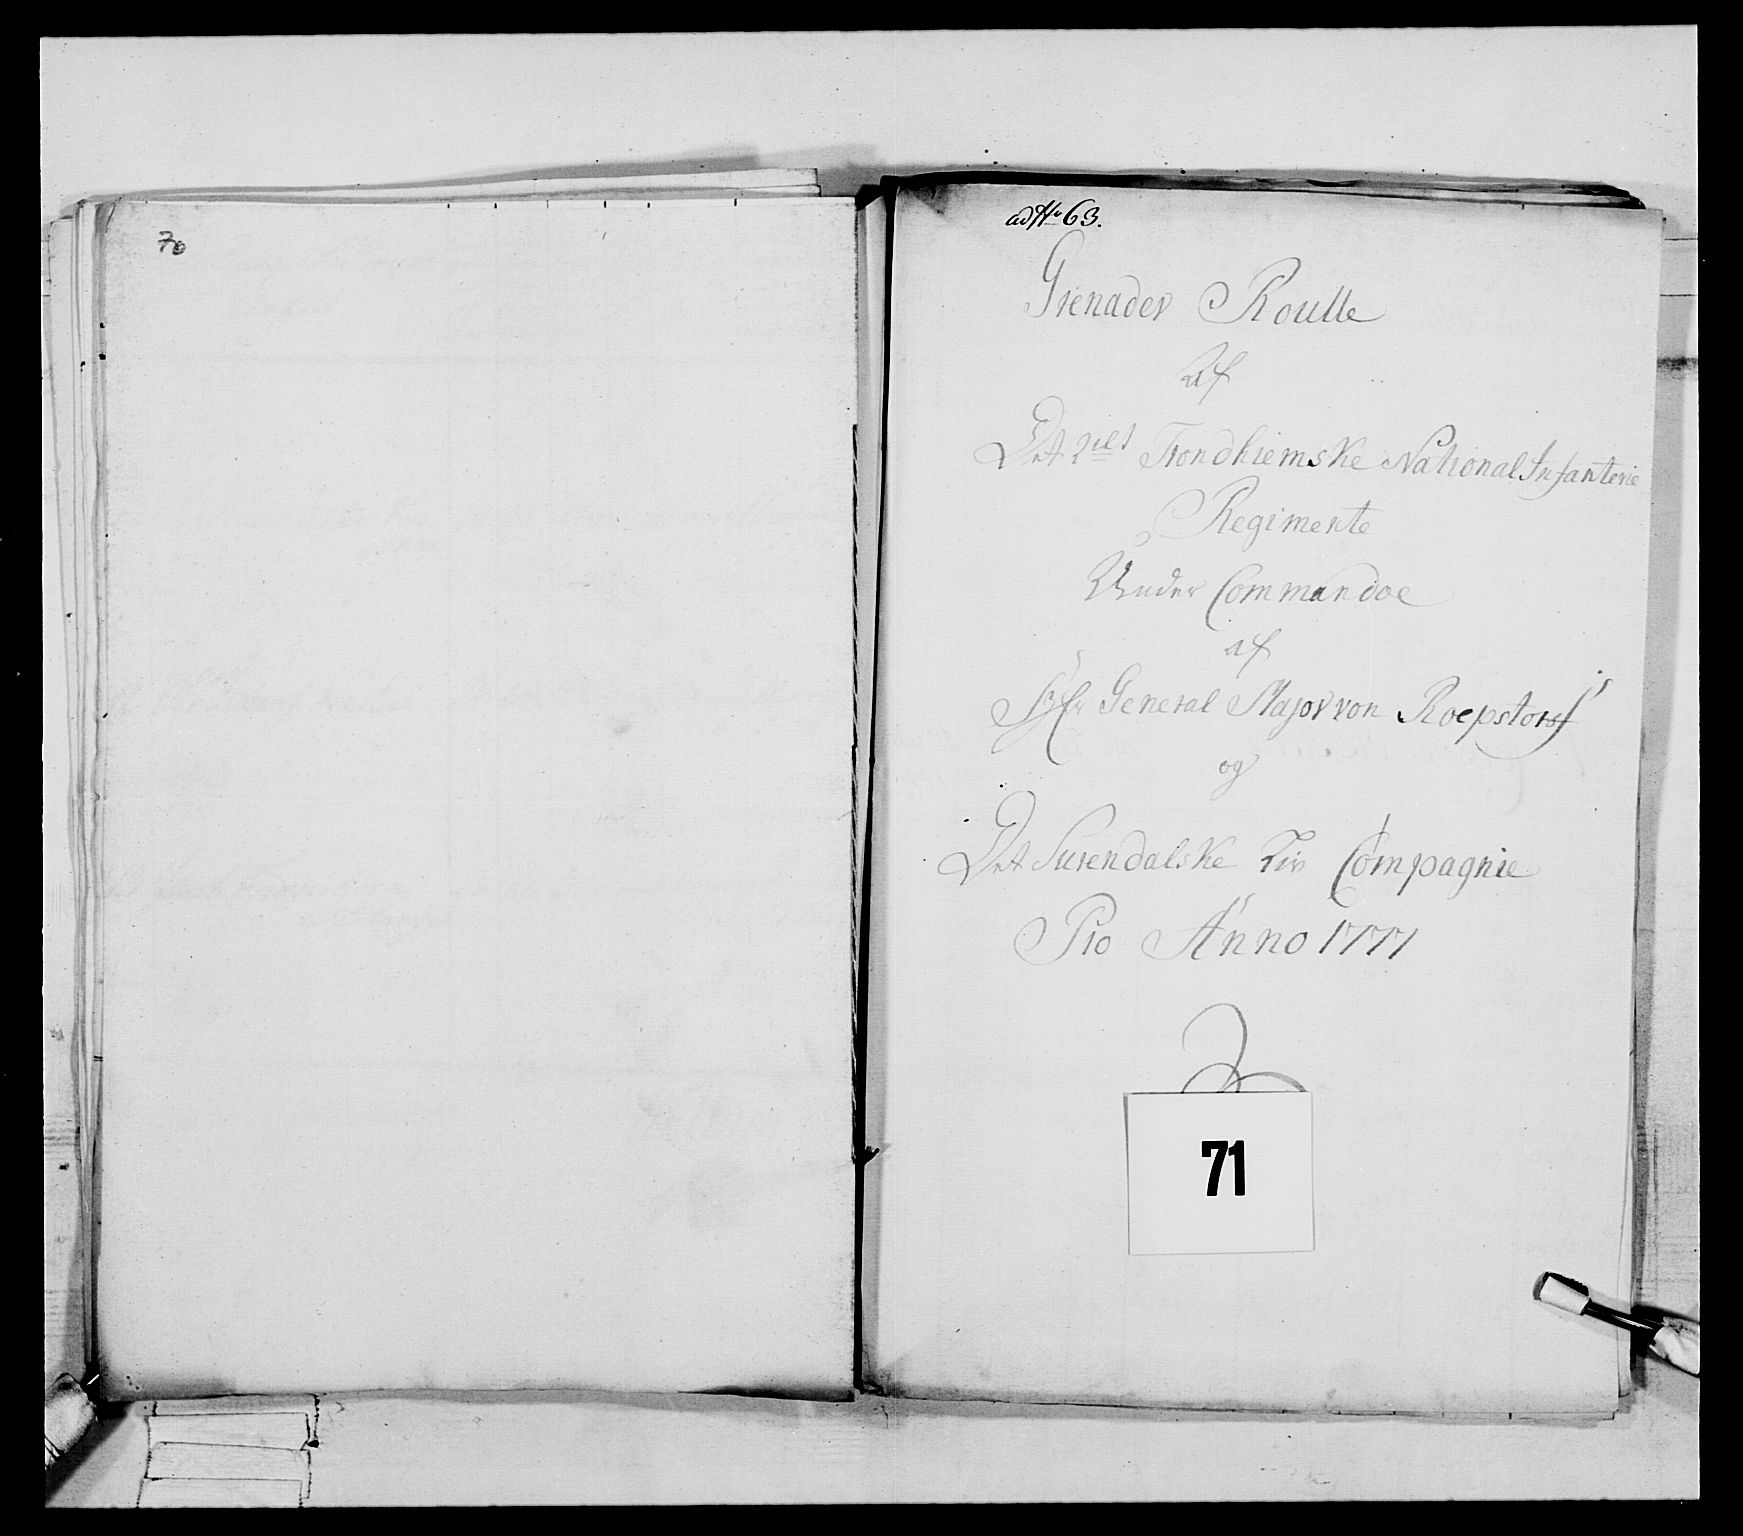 70
ad No 63.
Grenader Roulle
Af
Det 2det Trondhiemske National Infanterie
Regimente
Under Commandoe
af
Hr General Major von Roepstorf
og
Det Surendalske Liv Compagnie
Pro Anno 1777
71